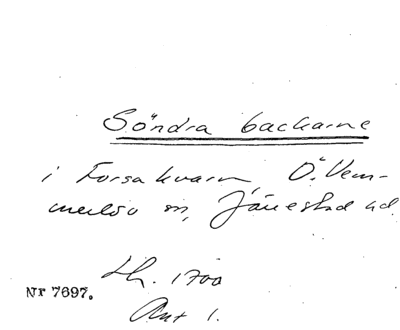 Söndra backarne
i Forsakvarn, Ö. Vem-
merlöv sn, Järrestad hd.
Lh. 1700
Nr 7697.
Ant 1.